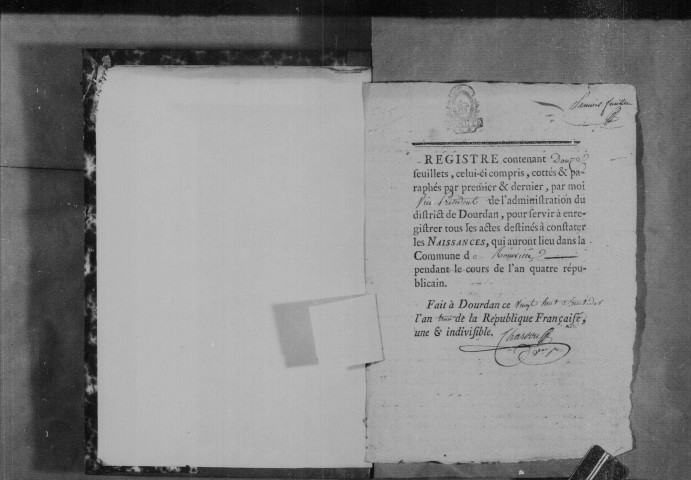 Premier feuillet
REGISTRE contenant Douze
feuillets, celui-ci compris, cottés & pa-
raphés par premier & dernier, par moi
Vice Président de l'administration du
district de Dourdan, pour servir à enre-
gistrer tous les actes destinés à constater
les NAISSANCES, qui auront lieu dans la
Commune de
pendant le cours de l'an quatre répu-
blicain.
Fait à Dourdan ce Vingt huit
l'an trois de la République Française,
une & indivisible.